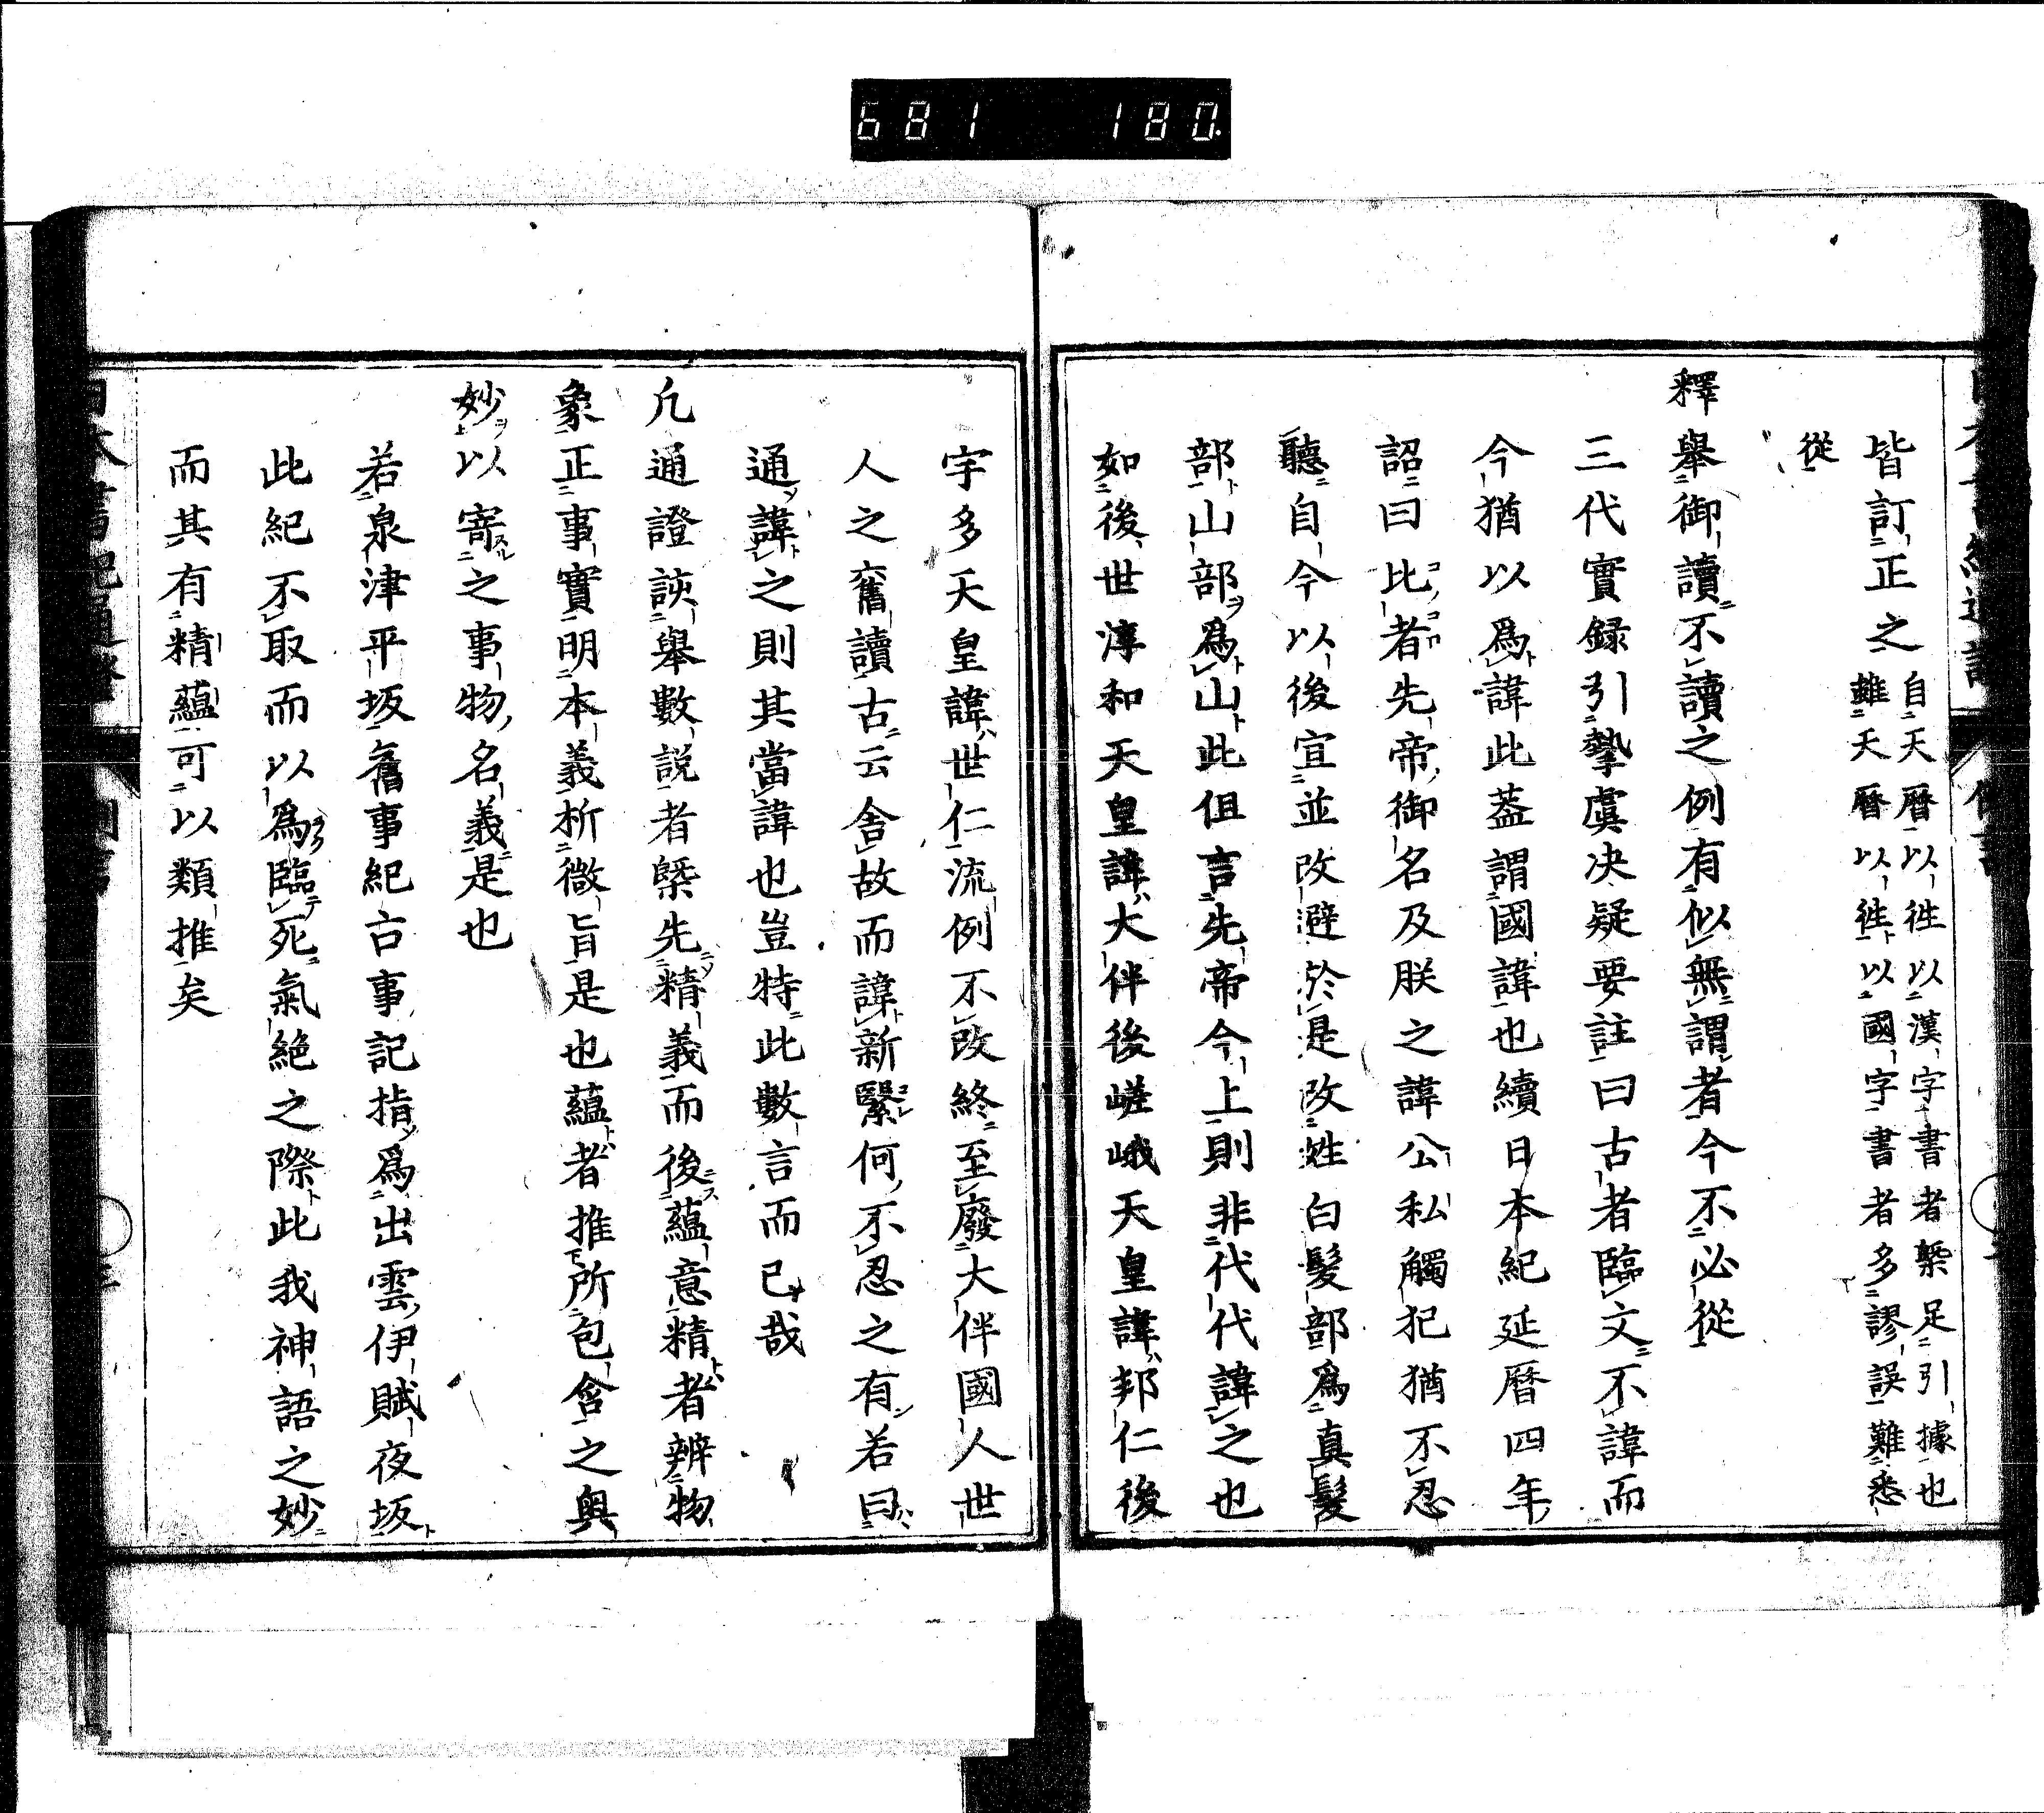 681 180.
皆訂正之自天曆以往以漢字書者槩足引據也
雖天曆以往以國字書者多謬誤難悉
從
釋舉御讀不讀之例有似無謂者今不必從
三代實録引摯虞决疑要註曰古者臨文不諱而
今猶以爲諱此蓋謂國諱也續日本紀延曆四年
詔曰比者先帝御名及朕之諱公私觸犯猶不忍
聽自今以後宜並改避於是改姓白髮部爲真髮
部山部爲山此但言先帝今上則非代代諱之也
如後世淳和天皇諱大伴後嵯峨天皇諱邦仁後
宇多天皇諱世仁流例不改終至廢大伴國人世
人之奮讀古云舍故而諱新緊何不忍之有若曰
通諱之則其當諱也豈特此數言而已哉
凡通證詼舉數說者槩先精義而後蘊意精者辨物
象正事實明本義析微旨是也蘊者推所包含之奥
妙以寄之事物名義是也
若泉津平坂舊事紀古事記指爲出雲伊賦夜坂
此紀不取而以爲臨死氣絶之際此我神語之妙
而其有精蘊可以類推矣